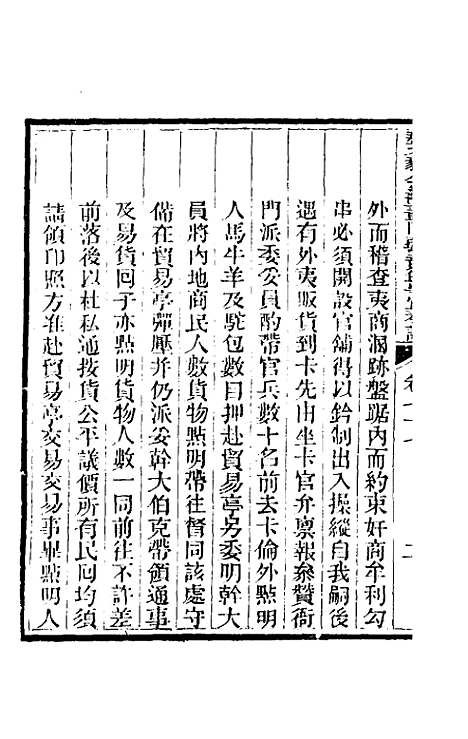 外而稽查夷商溷跡盤踞內而約束奸商牟利勾
串必須開設官舖得以鈐制出入操縱自我嗣後
遇有外夷販貨到卡先由坐卡官弁稟報叅贊衙
門派委妥員酌帶官兵數十名前去卡倫外點明
人馬牛羊及駝包數目押赴貿易亭另委明幹大
員將內地商民人數貨物點明帶往督同該處守
備在貿易亭彈壓并仍派妥幹大伯克帶領通事
及易貨回子亦點明貨物人數一同前往不許差
前落後以杜私通按貨公平議價所有民回均須
請領印照方准赴貿易亭交易交易事畢點明人